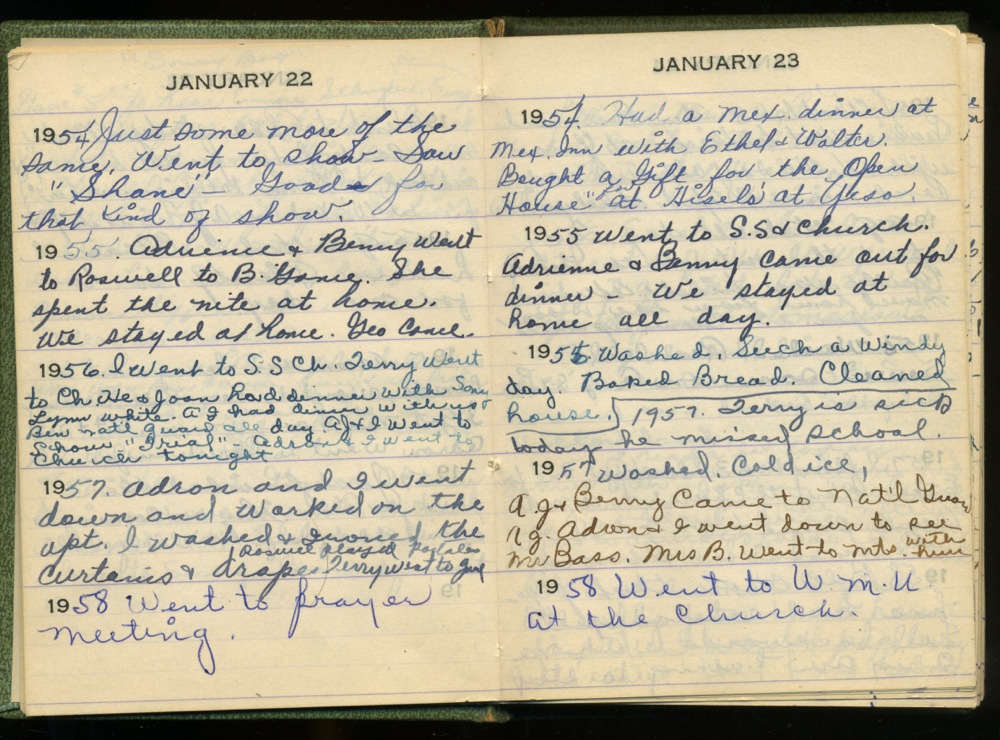 JANUARY 22
1954 Just some more of the
same. Went to show - Saw
"Shane" - Good for
that kind of show.
1955. Adrienne & Benny went
to Roswell to B. Game. She
spent the nite at home.
We stayed at home. Geo Came.
1956. I went to S.S Ch. Terry went
to Ch. He & Joan had dinner with
Lynn White. A J had dinner with us
Ben Nat'l Guard all day AJ & I went to
Show "Trial" - Adron & I went to
Church tonight
1957. Adron and I went
down and worked on the
apt. I washed & Ironed the
Roswell played Portales
curtains & drapes Terry went to
1958 Went to prayer
meeting.
JANUARY 23
1954 Had a Mex. dinner at
Mex. Inn with Ethel & Walter.
Bought a Gift for the "Open
House" at Hisels' at Yeso.
1955 Went to S.S & Church.
Adrienne & Benny came out for
dinner - We stayed at
home all day.
1956 Washed. Such a windy
day. Baked Bread. Cleaned
house. 1957. Terry is sick
today he missed school.
1957 Washed. Cold ice,
A J & Benny Came to Nat'l Guard
Adron & I went down to see
Mr Bass. Mrs B. Went to Mts. with him
1958 Went to W.M.U
at the Church.